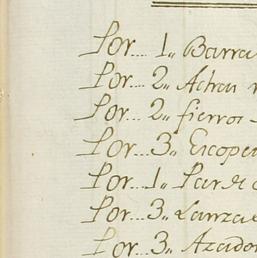 Por... 1,, Barra
Por... 2,, Achas
Por... 2,, fierros
Por... 3,, Escope
Por... 1,, Par de
Por... 3,, Lanzas
Por... 3,, Azado